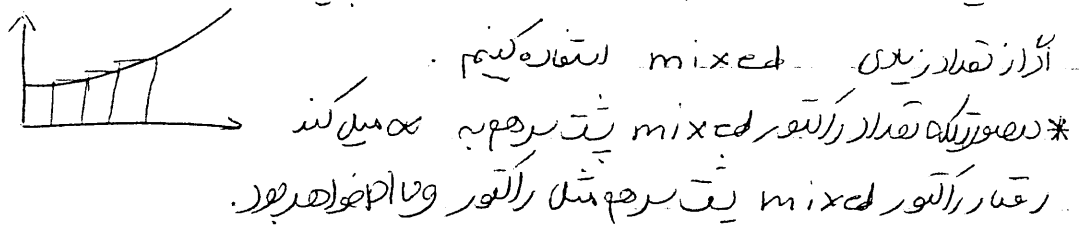 اگر از تعداد زیادی mixed استفاده کنیم .
* درصورتیکه تعداد راکتور mixed پشت سرهم به ∞ میل کند
رفتار راکتور mixed پشت سرهم مثل راکتور plug خواهد بود.